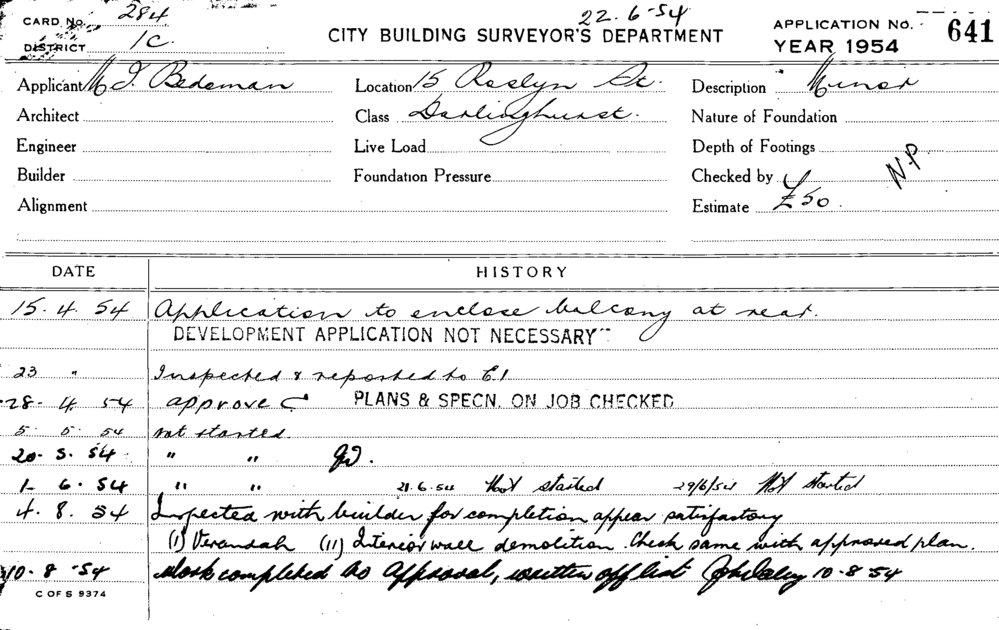 CARD No. 284
22.6-54
DISTRICT 1C.
CITY BUILDING SURVEYOR'S DEPARTMENT
APPLICATION No. 641
YEAR 1954
Applicant M J. Bedeman Location 15 Roslyn St. Description Minor
Architect Class Darlinghurst. Nature of Foundation
Engineer Live Load Depth of Footings
Builder Foundation Pressure Checked by N.P.
Alignment Estimate £50.
DATE HISTORY
15.4.54 Application to enclose balcony at rear.
DEVELOPMENT APPLICATION NOT NECESSARY
23 " Inspected & reported to C.I
28-4.54 approve PLANS & SPECN. ON JOB CHECKED
5.5.54 not started.
20-5.54 " "
1-6.54 " " 21.6.54 Not started 29/6/54 Not started
4.8.54 Inspected with builder for completion appear satisfactory
(I) Verandah (II) Interior wall demolition. Check same with approved plan.
10-8-54 Work completed as Approval, written off list 10-8-54
C OF S 9374